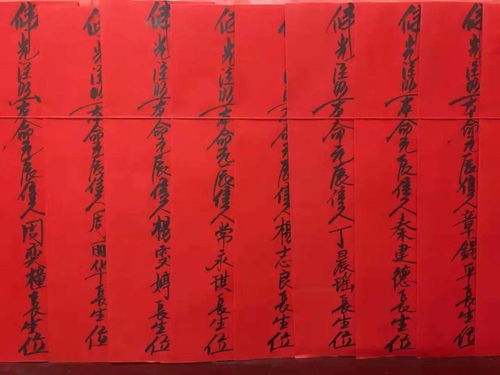 佛光注照本命元辰信人章錫平長生位
佛光注照本命元辰信人秦建德長生位
佛光注照本命元辰信人丁晨瑶長生位
佛光注照本命元辰信人楊志良長生位
佛光注照本命元辰信人常永琪長生位
佛光注照本命元辰信人楊長生位
佛光注照本命元辰信人周長生位
佛光注照本命元辰信人周長生位